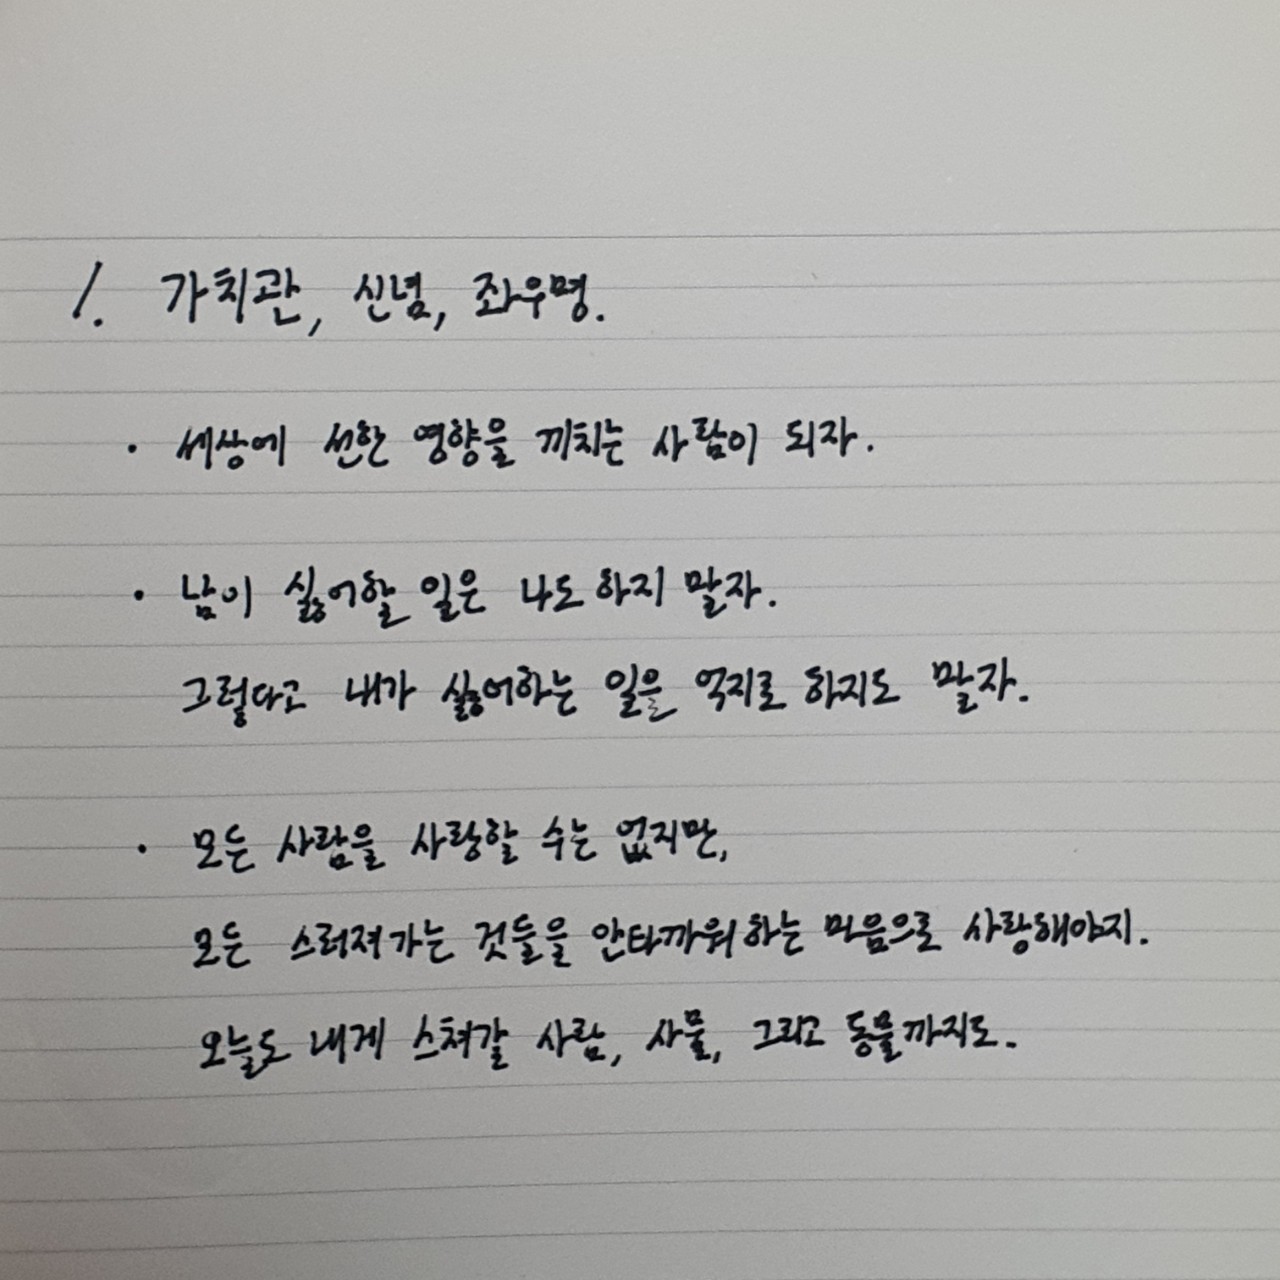 1. 가치관, 신념, 좌우명.
· 세상에 선한 영향을 끼치는 사람이 되자.
· 남이 싫어할 일은 나도 하지 말자.
그렇다고 내가 싫어하는 일을 억지로 하지도 말자.
· 모든 사람을 사랑할 수는 없지만,
모든 스러져가는 것들을 안타까워하는 마음으로 사랑해야지.
오늘도 내게 스쳐갈 사람, 사물, 그리고 동물까지도.